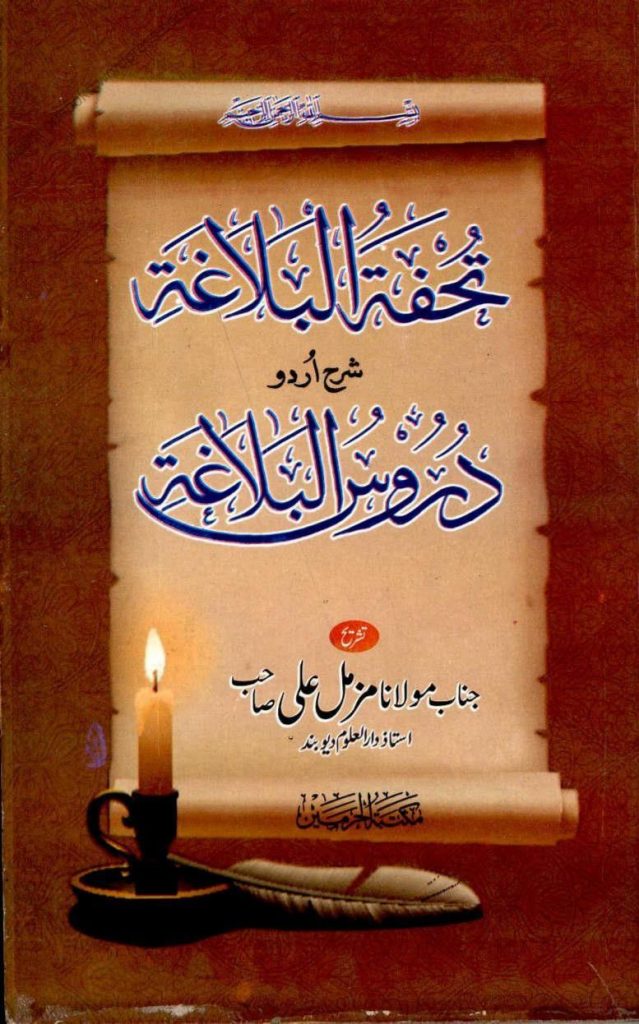 بسم الله الرحمن الرحيم
تُحْفَةُ الْبَلَاغَةِ
شرح اُردو
دُرُوْسُ الْبَلَاغَةِ
تشریح
جناب مولانا مزمل علی صاحب
استاذ دارالعلوم دیوبند
مکتبۃ الحرمین